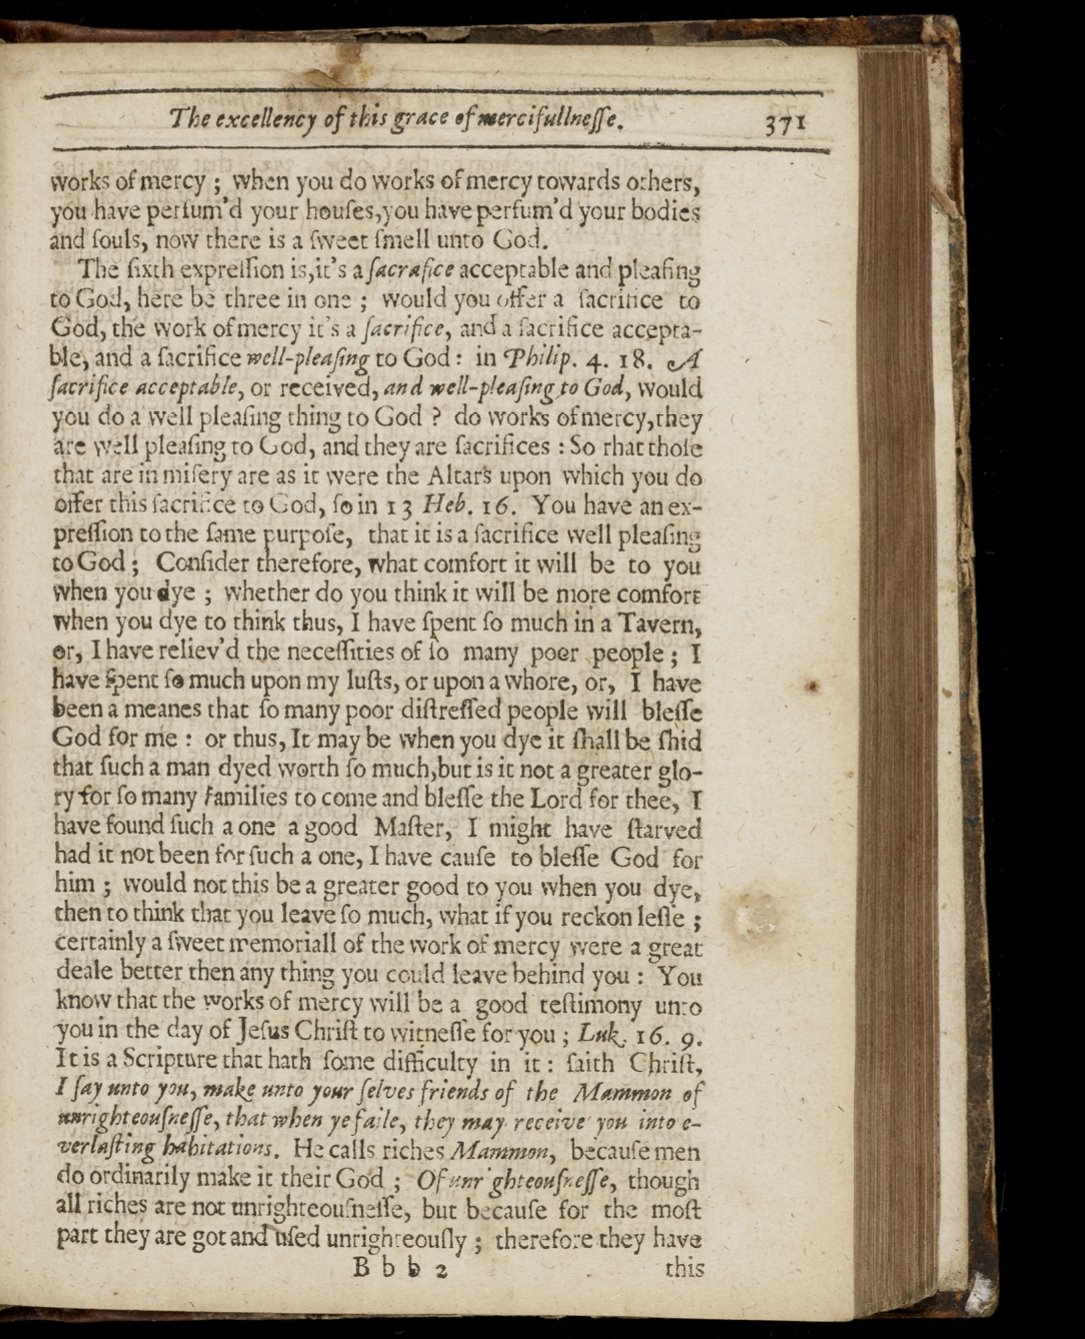 The excellency of this grace of mercifullneſſe. 371
works of mercy ; when you do works of mercy towards others,
you have perfum'd your houſes,you have perfum'd your bodies
and ſouls, now there is a ſweet ſmell unto God.
The ſixth expreſſion is,it's a ſacrafice acceptable and pleaſing
to God, here be three in one ; would you offer a ſacrifice to
God, the work of mercy it's a ſacrifice, and a ſacrifice accepta-
ble, and a ſacrifice well-pleaſing to God : in Philip. 4. 18. A
ſacrifice acceptable, or received, and well-pleaſing to God, would
you do a well pleaſing thing to God ? do works of mercy,they
are well pleaſing to God, and they are ſacrifices : So rhat thoſe
that are in miſery are as it were the Altars upon which you do
offer this ſacrifice to God, ſo in 13 Heb. 16. You have an ex-
preſſion to the ſame purpoſe, that it is a ſacrifice well pleaſing
to God ; Conſider therefore, what comfort it will be to you
when you dye ; whether do you think it will be more comfort
when you dye to think thus, I have ſpent ſo much in a Tavern,
or, I have reliev'd the neceſſities of ſo many poor people ; I
have ſpent ſo much upon my luſts, or upon a whore, or, I have
been a meanes that ſo many poor diſtreſſed people will bleſſe
God for me : or thus, It may be when you dye it ſhall be ſhid
that ſuch a man dyed worth ſo much,but is it not a greater glo-
ry for ſo many families to come and bleſſe the Lord for thee, I
have found ſuch a one a good Maſter, I might have ſtarved
had it not been for ſuch a one, I have cauſe to bleſſe God for
him ; would not this be a greater good to you when you dye,
then to think that you leave ſo much, what if you reckon leſſe ;
certainly a ſweet memoriall of the work of mercy were a great
deale better then any thing you could leave behind you : You
know that the works of mercy will be a good teſtimony unto
you in the day of Jeſus Chriſt to witneſſe for you ; Luk. 16. 9.
It is a Scripture that hath ſome difficulty in it : ſaith Chriſt,
I ſay unto you, make unto your ſelves friends of the Mammon of
unrighteouſneſſe, that when ye faile, they may receive you into e-
verlaſting habitations. He calls riches Mammon, becauſe men
do ordinarily make it their God ; Of unrighteouſneſſe, though
all riches are not unrighteouſneſſe, but becauſe for the moſt
part they are got and uſed unrighteouſly ; therefore they have
B b b 2 this